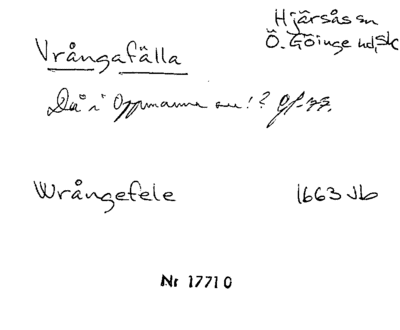 Hjärsås sn
Ö. Göinge hd, Sk
Vrångafälla
Då i Oppmanna sn!?
Wrångefele 1663 Jb
Nr 17710